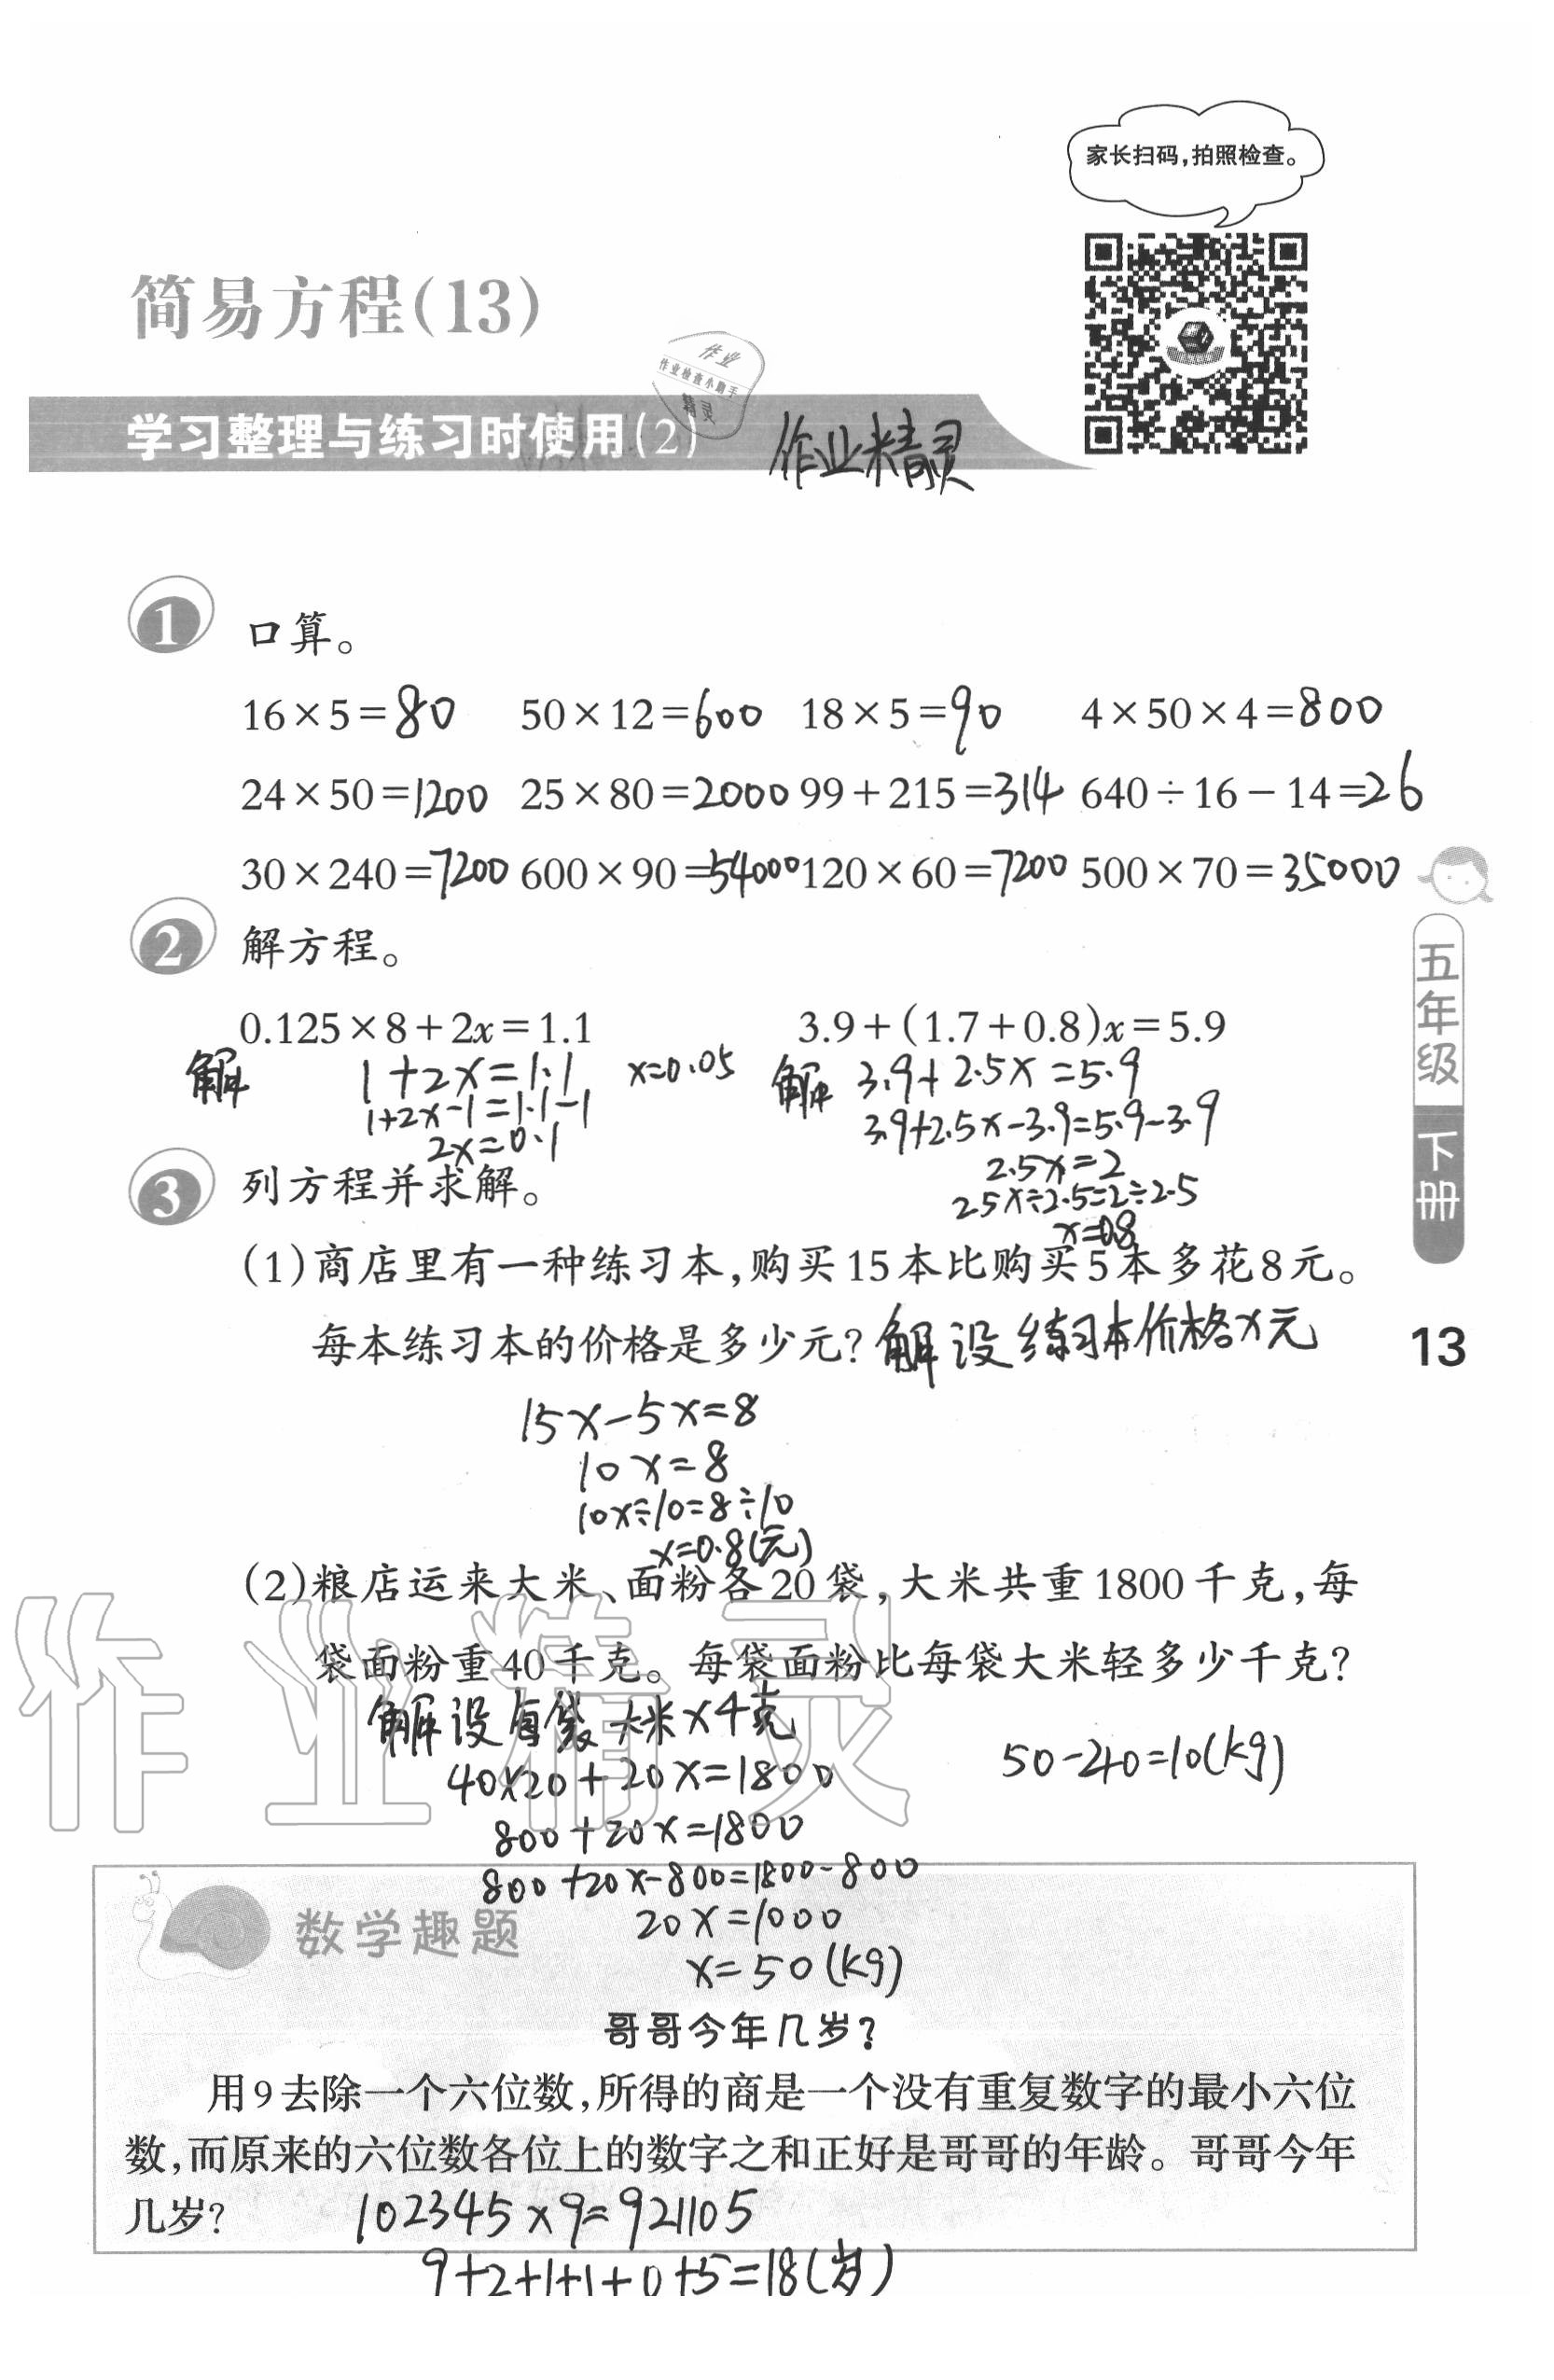 家长扫码,拍照检查。
简易方程(13)
作业
作业检查小助手
精灵
学习整理与练习时使用(2)
作业精灵
1 口算。
16×5=80 50×12=600 18×5=90 4×50×4=800
24×50=1200 25×80=2000 99+215=314 640÷16-14=26
30×240=7200 600×90=54000 120×60=7200 500×70=35000
2 解方程。
0.125×8+2x=1.1 3.9+(1.7+0.8)x=5.9
解 1+2x=1.1 x=0.05 解 3.9+2.5x=5.9
1+2x-1=1.1-1 3.9+2.5x-3.9=5.9-3.9
2x=0.1 2.5x=2
2.5x÷2.5=2÷2.5
x=0.8
3 列方程并求解。
(1)商店里有一种练习本,购买15本比购买5本多花8元。
每本练习本的价格是多少元? 解 设 练习本价格x元
15x-5x=8
10x=8
10x÷10=8÷10
x=0.8(元)
(2)粮店运来大米、面粉各20袋,大米共重1800千克,每
袋面粉重40千克。每袋面粉比每袋大米轻多少千克?
解 设 每袋大米x千克
40×20+20x=1800 50-40=10(kg)
800+20x=1800
800+20x-800=1800-800
20x=1000
x=50(kg)
五年级
下册
13
作业精灵
数学趣题
哥哥今年几岁?
用9去除一个六位数,所得的商是一个没有重复数字的最小六位
数,而原来的六位数各位上的数字之和正好是哥哥的年龄。哥哥今年
几岁? 102345×9=921105
9+2+1+1+0+5=18(岁)